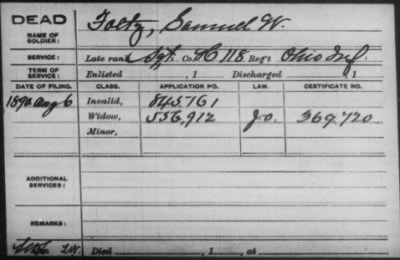 DEAD
NAME OF SOLDIER: Foltz, Samuel W.
SERVICE: Late rank Sgt. Co. H 118 Reg't Ohio Inf.
TERM OF SERVICE: Enlisted , 1 Discharged , 1
DATE OF FILING. CLASS. APPLICATION NO. LAW. CERTIFICATE NO.
1892 Aug 6 Invalid, 845,761
Widow, 556,912 Jo. 369,720
Minor,
ADDITIONAL SERVICES:
REMARKS:
Died , 1 , at